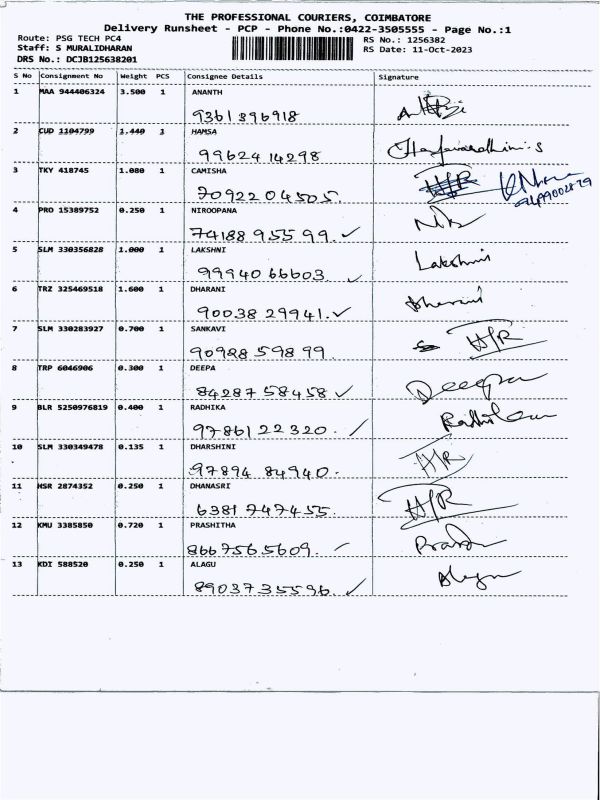 THE PROFESSIONAL COURIERS, COIMBATORE
Delivery Runsheet - PCP - Phone No.:0422-3505555 - Page No.:1
Route: PSG TECH PC4 RS No.: 1256382
Staff: S MURALIDHARAN RS Date: 11-Oct-2023
DRS No.: DCJB125638201
S No Consignment No Weight PCS Consignee Details Signature
1 MAA 944406324 3.500 1 ANANTH
9361396918
2 CUD 1104799 1.440 1 HAMSA
9962414298
3 TKY 418745 1.080 1 CAMISHA H/R
7092204505.
4 PRO 15389752 0.250 1 NIROOPANA
74188 955 99. ✓
5 SLM 330356828 1.000 1 LAKSHNI Lakshmi
99940 66603 ✓
6 TRZ 325469518 1.600 1 DHARANI Dharani
90038 29941. ✓
7 SLM 330283927 0.700 1 SANKAVI H/R
90928 59899
8 TRP 6046906 0.300 1 DEEPA Deepa
84287 58458 ✓
9 BLR 5250976819 0.400 1 RADHIKA
97861 22320. ✓
10 SLM 330349478 0.135 1 DHARSHINI H/R
97894 84940.
11 HSR 2874352 0.250 1 DHANASRI H/R
6381 747455.
12 KMU 3385850 0.720 1 PRASHITHA
8667565609. ✓
13 KDI 588520 0.250 1 ALAGU Alagu
8903735596. ✓